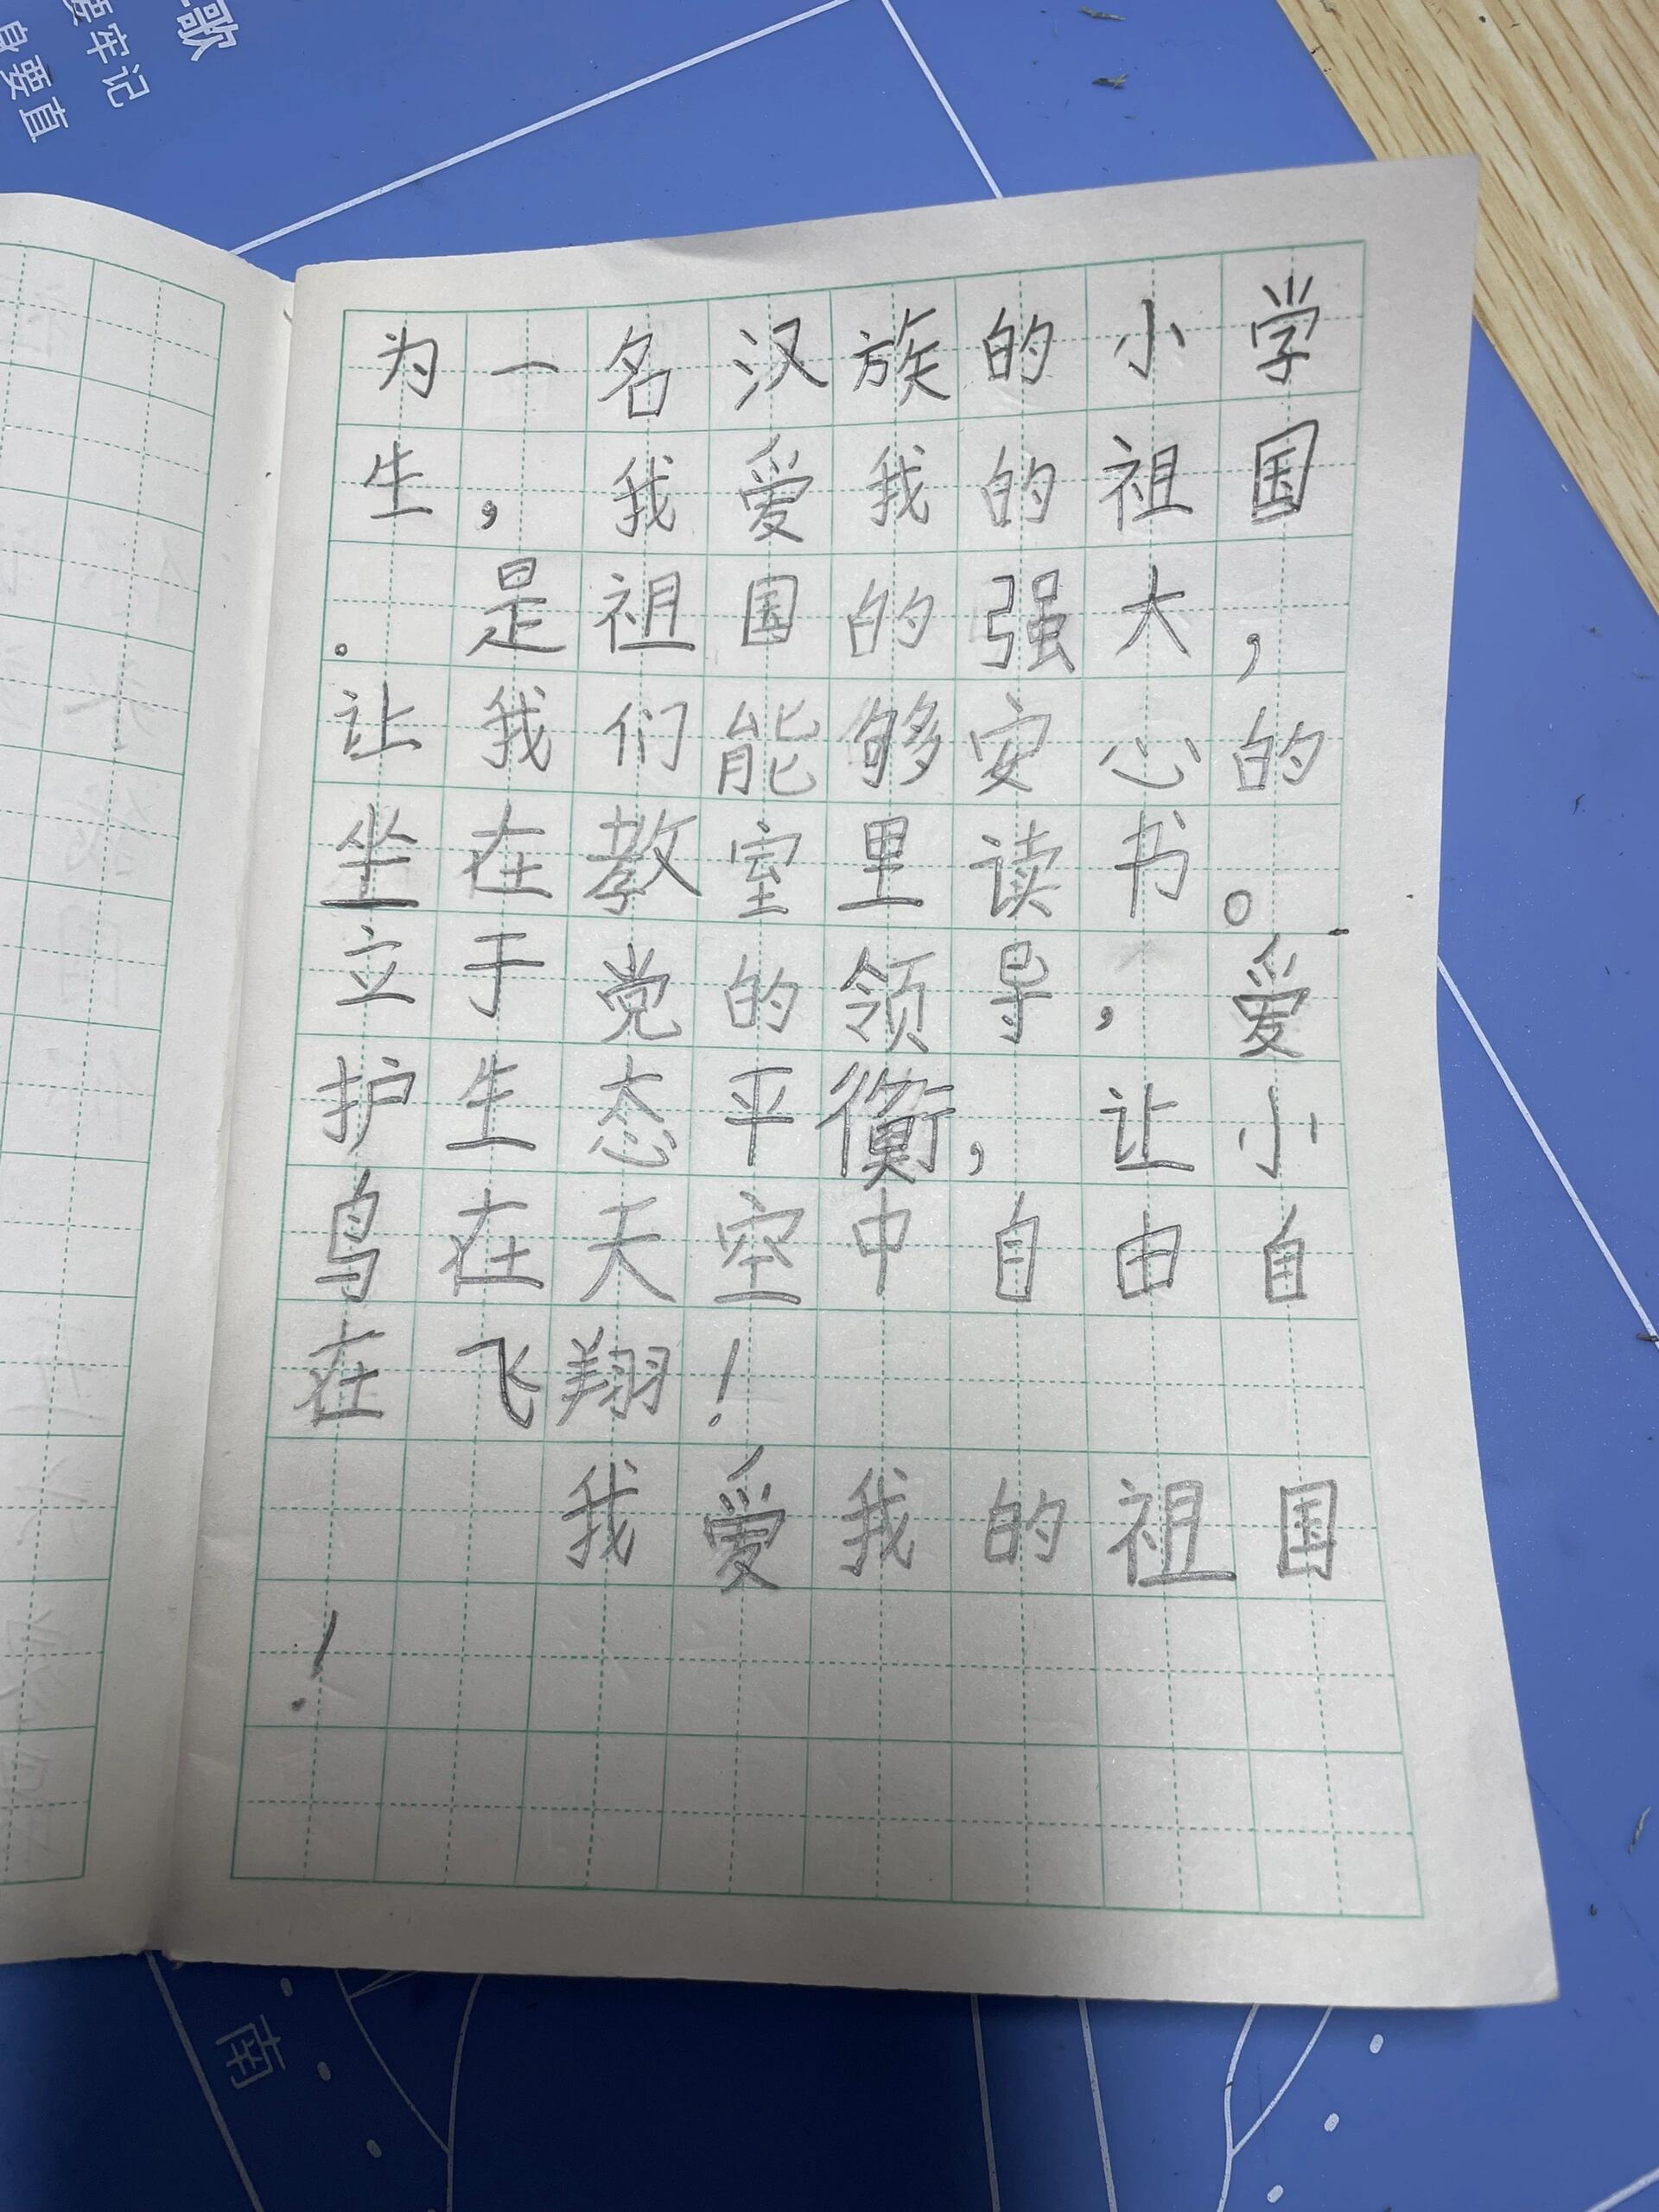 歌
要牢记
身要直
为一名汉族的小学
生，我爱我的祖国
。是祖国的强大，
让我们能够安心的
坐在教室里读书。
立于党的领导，爱
护生态平衡，让小
鸟在天空中自由自
在飞翔！
我爱我的祖国
！
南